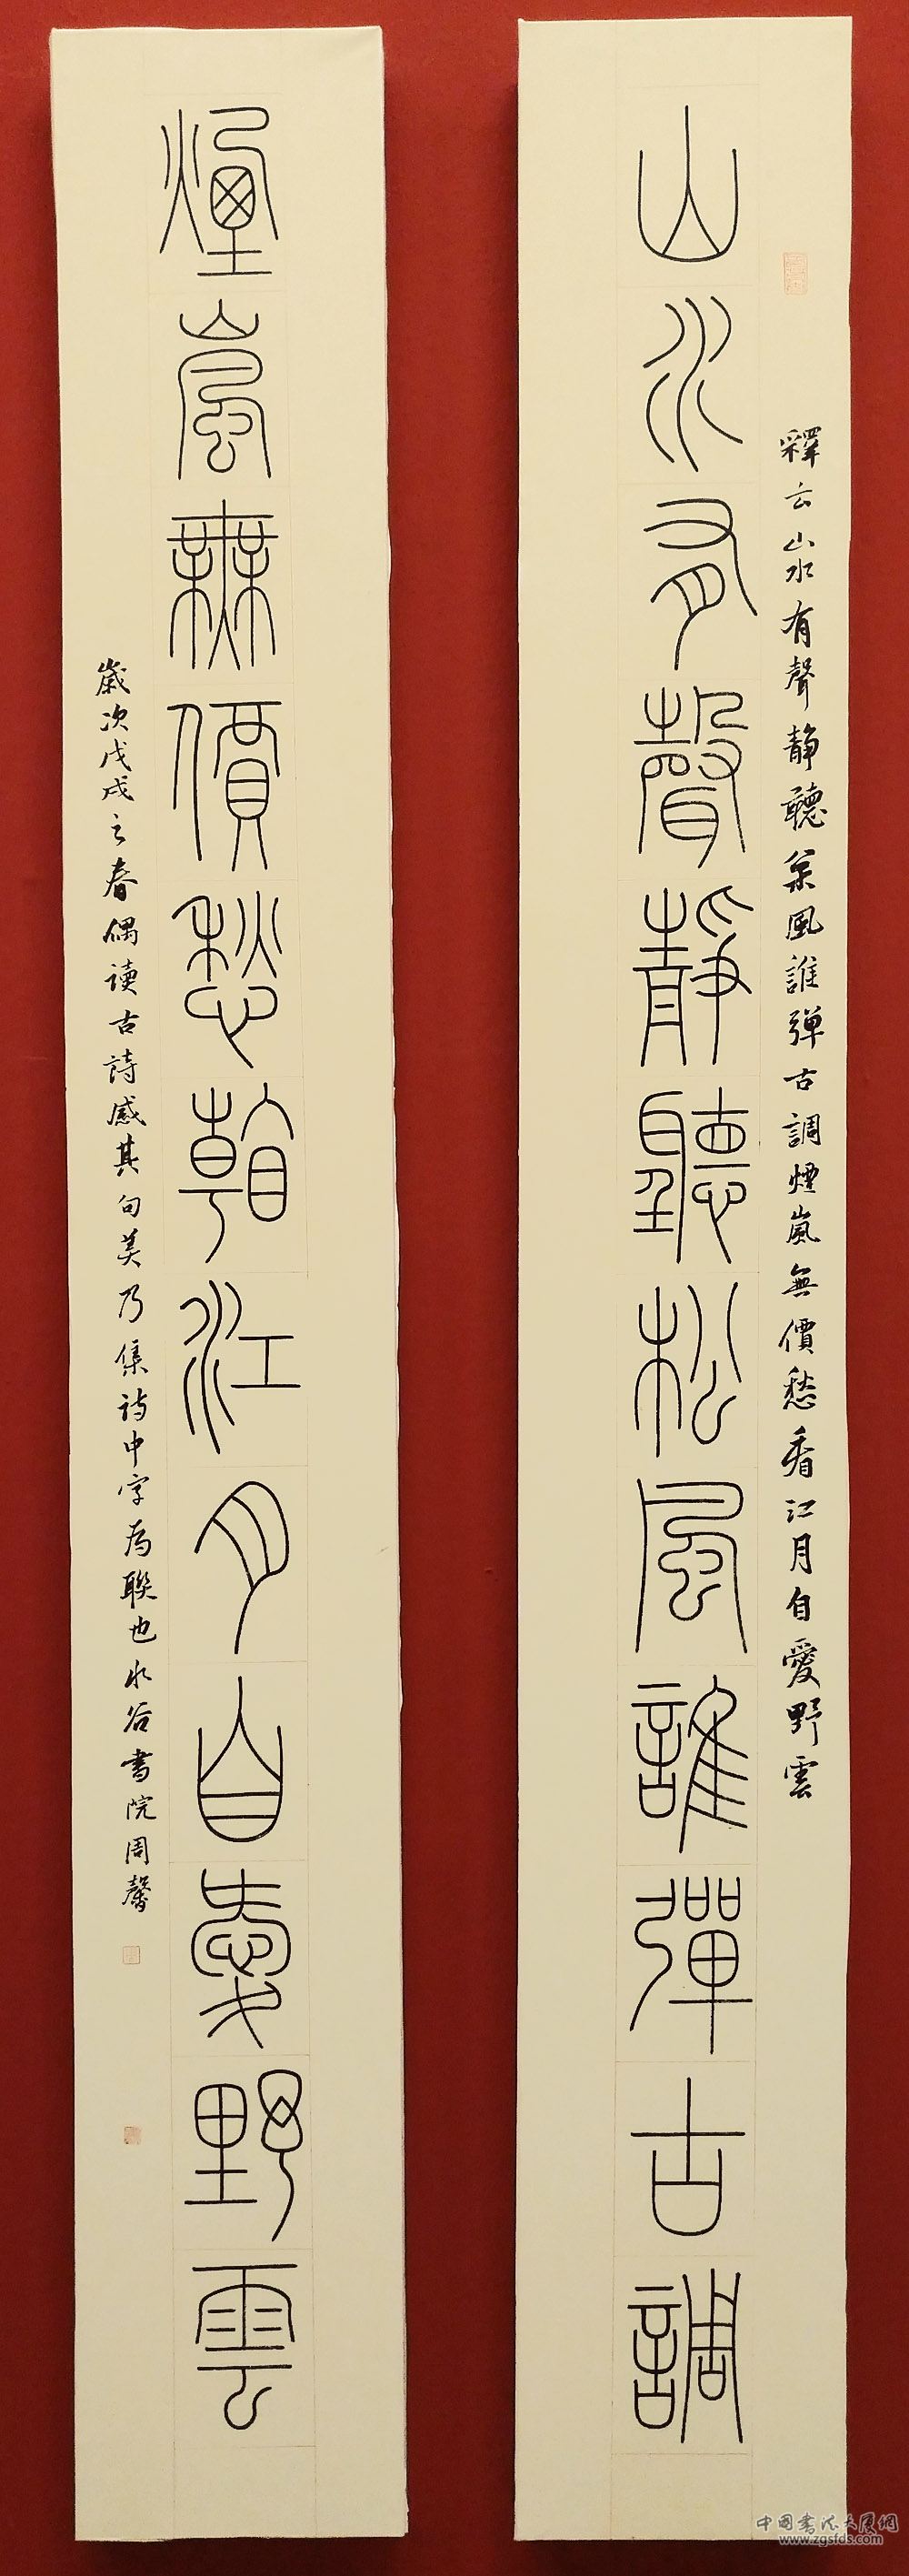 釋云山水有聲静聽枩風誰弹古調煙嵐無價愁看江月自愛野雲
山水有聲靜聽松風誰彈古調
煙嵐無價愁看江月自愛野雲
歲次戊戌之春偶读古詩感其句美乃集诗中字为聯也水谷书院周馨
中国書法大展網
www.zgsfds.com